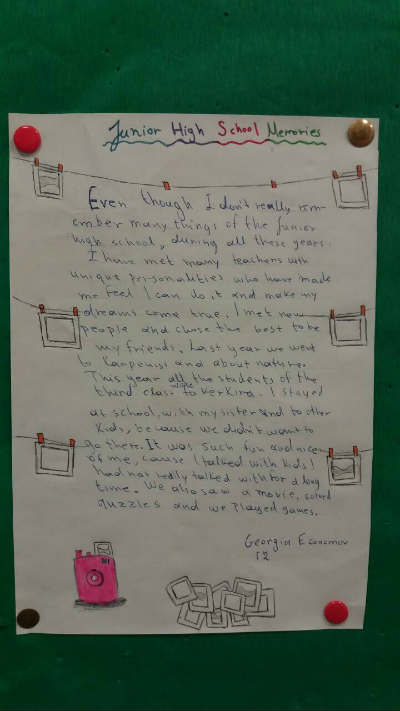 Junior High School Memories
Even though I don't really rem-
ember many things of the junior
high school, during all these years.
I have met many teachers with
unique personalities who have made
me feel I can do it and make my
dreams come true. I met new
people and chose the best to be
my friends. Last year we went
to Karpenisi and about nature.
This year all the students of the
third class to Kerkira. I stayed
at school, with my sister and to other
kids, because we didn't want to
go there. It was such fun and nice
of me, cause I talked with kids I
had not really talked with for a long
time. We also saw a movie, solved
puzzles and we played games.
Georgia Economou
Γ2